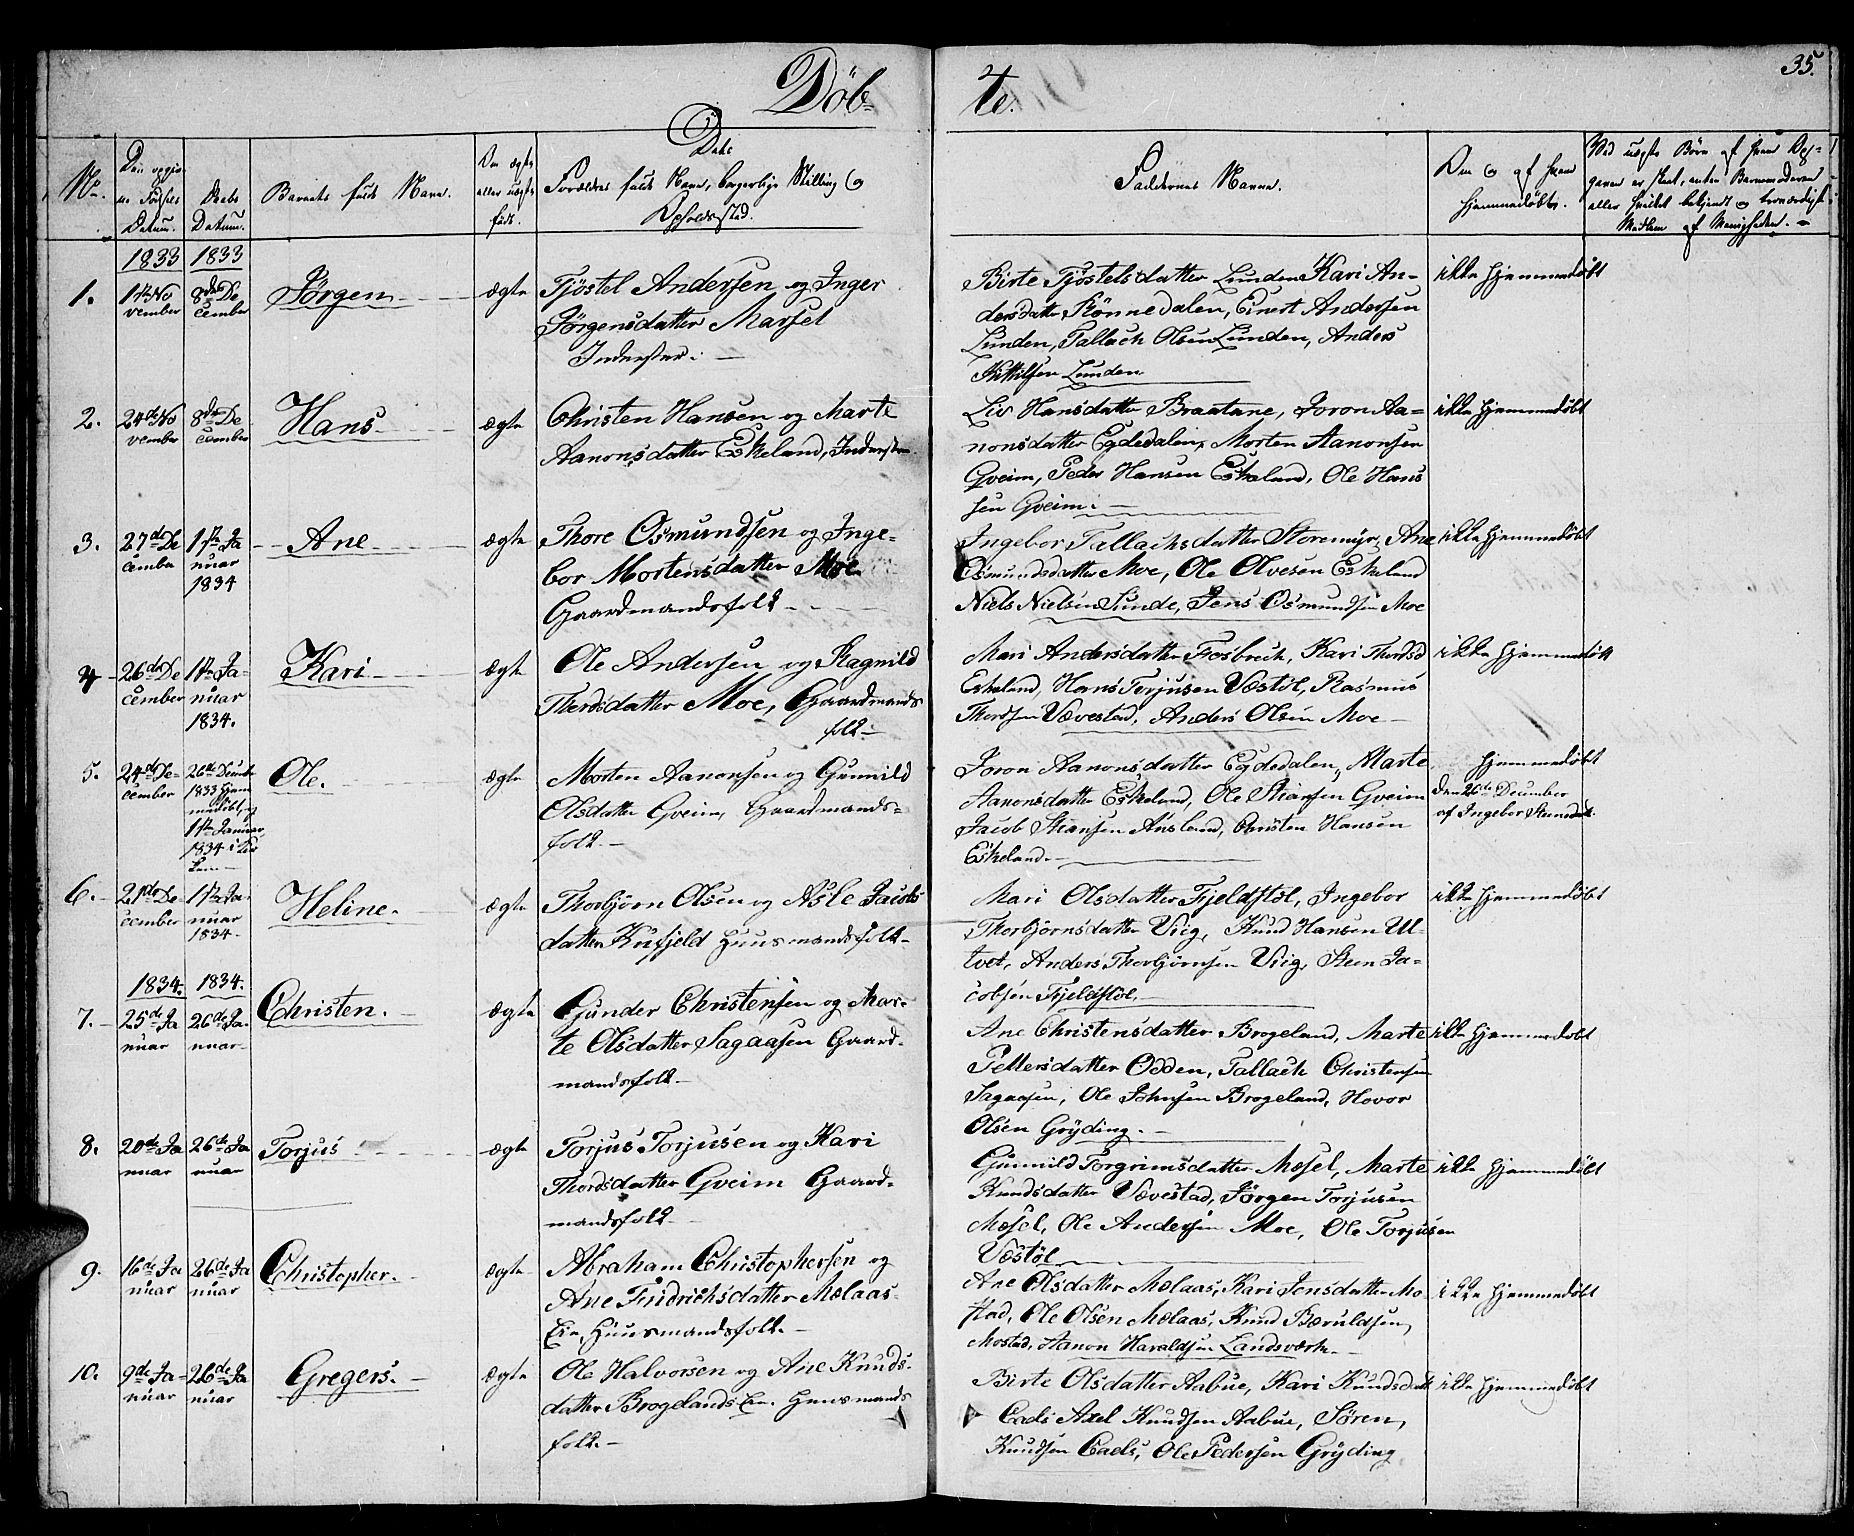 Döb-
te.
35.
No.
Den opgivne Födsels Datum.
Daabs Datum.
Barnets fulde Navn.
Om ægte eller uægte födt.
Dets
Forældres fulde Navn, borgerlige Stilling og
Opholdssted.
Faddernes Navne.
Om og af hvem
hjemmedöbt.
Ved uægte Börn af hvem Op-
gaven er skeet, enten Barnemoderen
eller hvilket bekjendt og troværdigt
Medlem af Menigheden.
1833 1833
1. 1ste No
vember
8de De
cember
Jörgen
ægte
Tjöstel Andersen og Inger
Jörgensdatter Marsel
Inderster.
Birte Tjöstelsdatter Lunden Kari An-
dersdatter Rönnedalen, Einert Andersen
Lunden, Tallach Olsen Lunden, Anders
Kittilsen Lunden
ikke hjemmedöbt
2. 24de No
vember
8de De
cember
Hans
ægte
Christen Hansen og Marte
Aanonsdatter Eskeland, Inderster.
Liv Hansdatter Braatane, Joron Aa-
nonsdatter Egdedalen, Morten Aanonsen
Gveim, Peder Hansen Eskeland, Ole Hans
sen Gveim.
ikke hjemmedöbt
3. 27de De
cember
1ste Ja
nuar
1834
Ane
ægte
Thore Osmundsen og Inge-
bor Mortensdatter Moe
Gaardmandsfolk
Ingebor Tallachsdatter Storemyr, Ane
Osmundsdatter Moe, Ole Olvesen Eskeland
Niels Nielsen Sunde, Jens Osmundsen Moe
ikke hjemmedöbt
4 26de De
cember
1ste Ja-
nuar
1834.
Kari
ægte
Ole Andersen og Ragnild
Thordsdatter Moe, Gaardmands
folk
Mari Andersdatter Fosbrech, Kari Thordsd
Eskeland, Hans Torjusen Væstöl, Rasmus
Thordsen Vævestad, Anders Olsen Moe
ikke hjemmedöbt
5. 24de De-
cember
26de Decemb
1833 hjem
medöbt, og
1ste Januar
1834 i Kir
ken
Ole.
ægte
Morten Aanonsen og Gunnild
Olsdatter Gveim, Gaardmands-
folk.
Joron Aanonsdatter Egdedalen, Marte
Aanonsdatter Eskeland, Ole Stiansen Gveim
Jacob Stiansen Ansland, Christen Hansen
Eskeland.
hjemmedöbt
den 26de December
af Ingebor Steensdatt.
6. 21de De-
cember
1ste Ja-
nuar
1834
Heline.
ægte
Thorbjörn Olsen og Asle Jacobs
datter Knifjeld Huusmandsfolk
Mari Olsdatter Fjeldstöl, Ingebor
Thorbjörnsdatter Viig, Knud Hansen Ul-
tvet, Anders Thorbjörnsen Viig, Steen Ja-
cobsen Fjeldstöl.
ikke hjemmedöbt
1834. 1834.
7. 25de Ja
nuar
26de Ja-
nuar
Christen.
ægte
Gunder Christensen og Mar-
te Olsdatter Sagaasen Gaard-
mandsfolk
Ane Christensdatter Brogeland, Marte
Pettersdatter Odden, Tallach Christensen
Sagaasen, Ole Johnsen Brogeland, Hovor
Olsen Gryding.
ikke hjemmedöbt
8. 20de Ja
nuar
26de Ja
nuar
Torjus
ægte
Torjus Torjusen og Kari
Thordsdatter Gveim Gaard-
mandsfolk.
Gunnild Torgrimsdatter Mæsel, Marte
Knudsdatter Vævestad, Jörgen Torjusen
Mæsel, Ole Andersen Moe, Ole Torjusen
Væstöl
ikke hjemmedöbt
9. 16de Ja
nuar
26de Ja
nuar
Christopher.
ægte
Abraham Christophersen og
Ane Fridrichsdatter Mælaas-
Eie, Huusmandsfolk.
Ane Olsdatter Mælaas, Kari Jensdatter Mo-
stad, Ole Olsen Mælaas, Knud Bæruldsen,
Mostad, Aanon Haraldsen Landsværk.
ikke hjemmedöbt
10. 9de Ja-
nuar
26de Ja
nuar
Gregers.
ægte
Ole Halvorsen og Ane Knuds-
datter Brogelands Eie. Huusmands
folk.
Birte Olsdatter Aabue, Kari Knudsdatt
Eads Axel Knudsen Aabue, Sören,
Knudsen Eads, Ole Pedersen Gryding
ikke hjemmedöbt